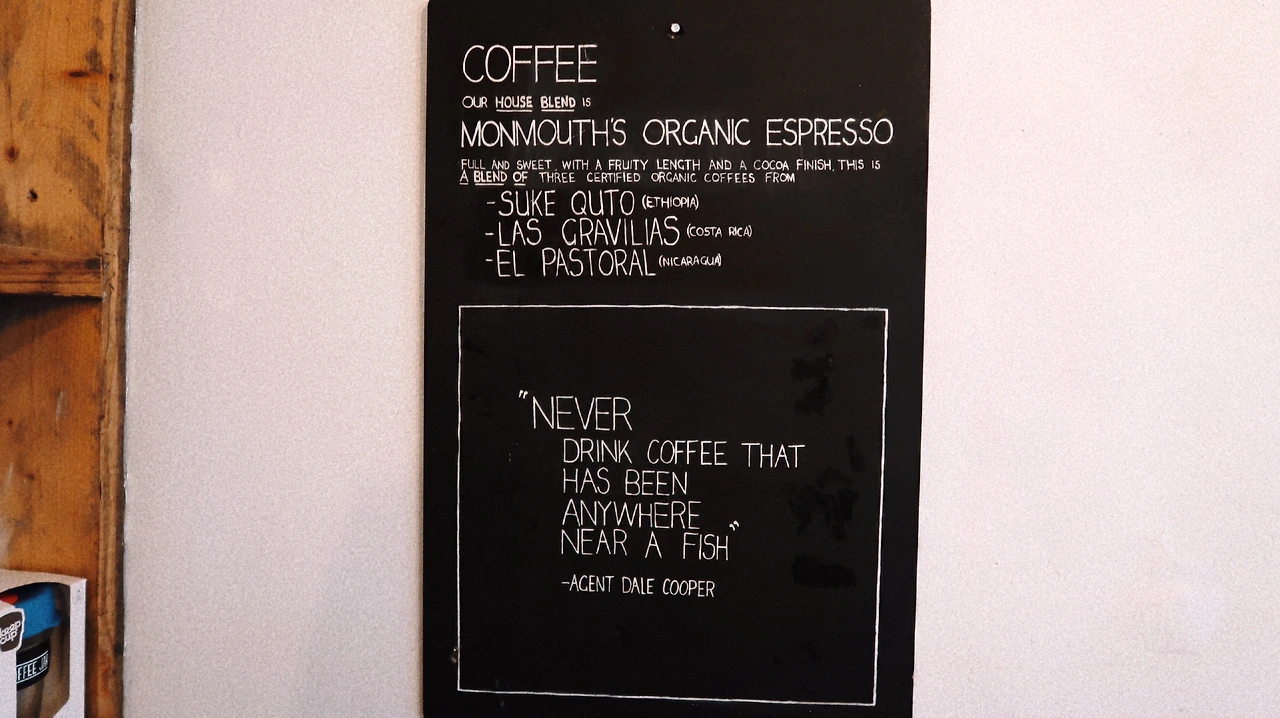 COFFEE
OUR HOUSE BLEND IS
MONMOUTH'S ORGANIC ESPRESSO
FULL AND SWEET, WITH A FRUITY LENGTH AND A COCOA FINISH, THIS IS
A BLEND OF THREE CERTIFIED ORGANIC COFFEES FROM
-SUKE QUTO (ETHIOPIA)
-LAS GRAVILIAS (COSTA RICA)
-EL PASTORAL (NICARAGUA)
"NEVER
DRINK COFFEE THAT
HAS BEEN
ANYWHERE
NEAR A FISH"
-AGENT DALE COOPER
keep
cup